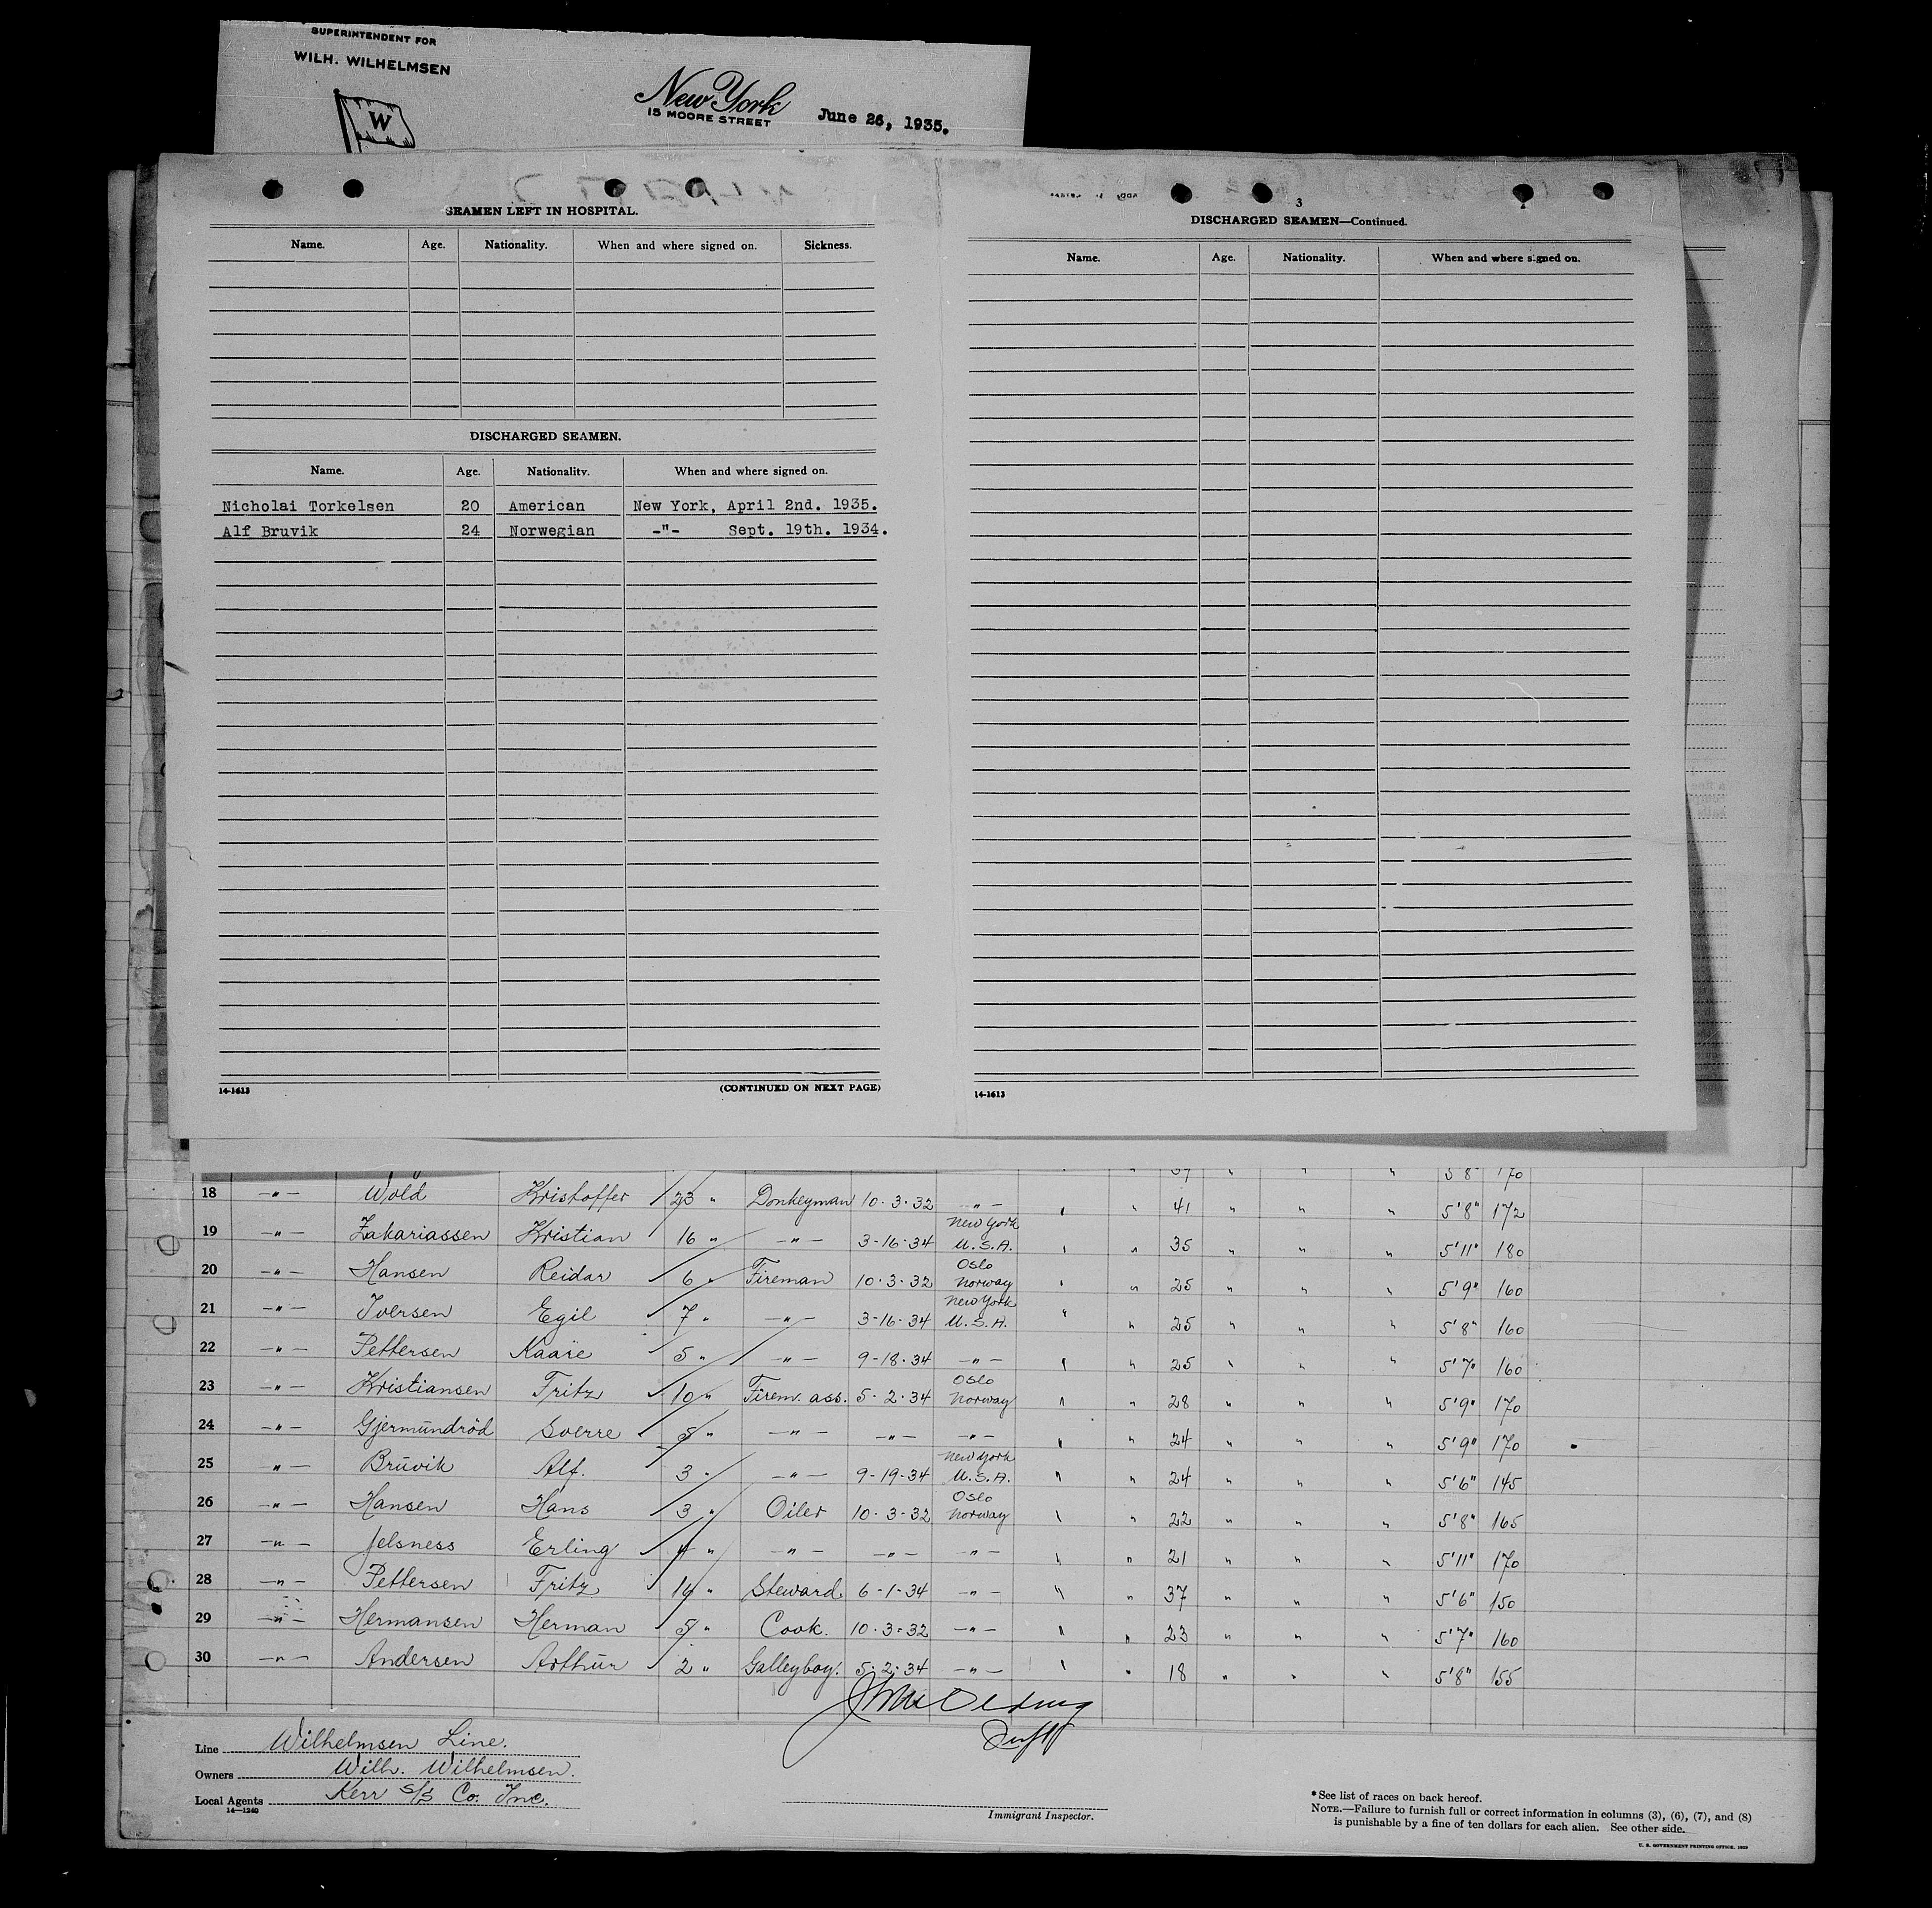 SUPERINTENDENT FOR
WILH. WILHELMSEN
W
New York
15 MOORE STREET
June 26, 1935.
SEAMEN LEFT IN HOSPITAL.
Name. Age. Nationality. When and where signed on. Sickness.
DISCHARGED SEAMEN.
Name. Age. Nationality. When and where signed on.
Nicholai Torkelsen 20 American New York, April 2nd. 1935.
Alf Bruvik 24 Norwegian -"- Sept. 19th. 1934.
14-1613 (CONTINUED ON NEXT PAGE)
3
DISCHARGED SEAMEN—Continued.
Name. Age. Nationality. When and where signed on.
14-1613
5'8" 170
18 -"- Wold Kristoffer 23 " Donkeyman 10-3-32 -"- " " 41 " " " 5'8" 172
19 -"- Zakariassen Kristian 16 " -"- 3-16-34 New York U.S.A. " " 35 " " " 5'11" 180
20 -"- Hansen Reidar 6 " Fireman 10-3-32 Oslo Norway " " 25 " " " 5'9" 160
21 -"- Iversen Egil 7 " -"- 3-16-34 New York U.S.A. " " 25 " " " 5'8" 160
22 -"- Pettersen Kaare 5 " -"- 9-18-34 -"- " " 25 " " " 5'7" 160
23 -"- Kristiansen Fritz 10 " Firem. ass. 5-2-34 Oslo Norway " " 28 " " " 5'9" 170
24 -"- Gjermundröd Sverre 5 " -"- -"- -"- " " 24 " " " 5'9" 170
25 -"- Brūvik Alf. 3 " -"- 9-19-34 New York U.S.A. " " 24 " " " 5'6" 145
26 -"- Hansen Hans 3 " Oiler 10-3-32 Oslo Norway " " 22 " " " 5'8" 165
27 -"- Jelsness Erling 4 " -"- -"- -"- " " 21 " " " 5'11" 170
28 -"- Pettersen Fritz 14 " Steward. 6-1-34 -"- " " 37 " " " 5'6" 150
29 -"- Hermansen Herman 5 " Cook. 10-3-32 -"- " " 23 " " " 5'7" 160
30 -"- Andersen Arthūr 2 " Galleyboy. 5-2-34 -"- " " 18 " " " 5'8" 155
Line Wilhelmsen Line.
Owners Wilh. Wilhelmsen.
Local Agents Kerr S/S Co. Inc.
14—1240
Immigrant Inspector.
* See list of races on back hereof.
NOTE.—Failure to furnish full or correct information in columns (3), (6), (7), and (8)
is punishable by a fine of ten dollars for each alien. See other side.
U. S. GOVERNMENT PRINTING OFFICE. 1929